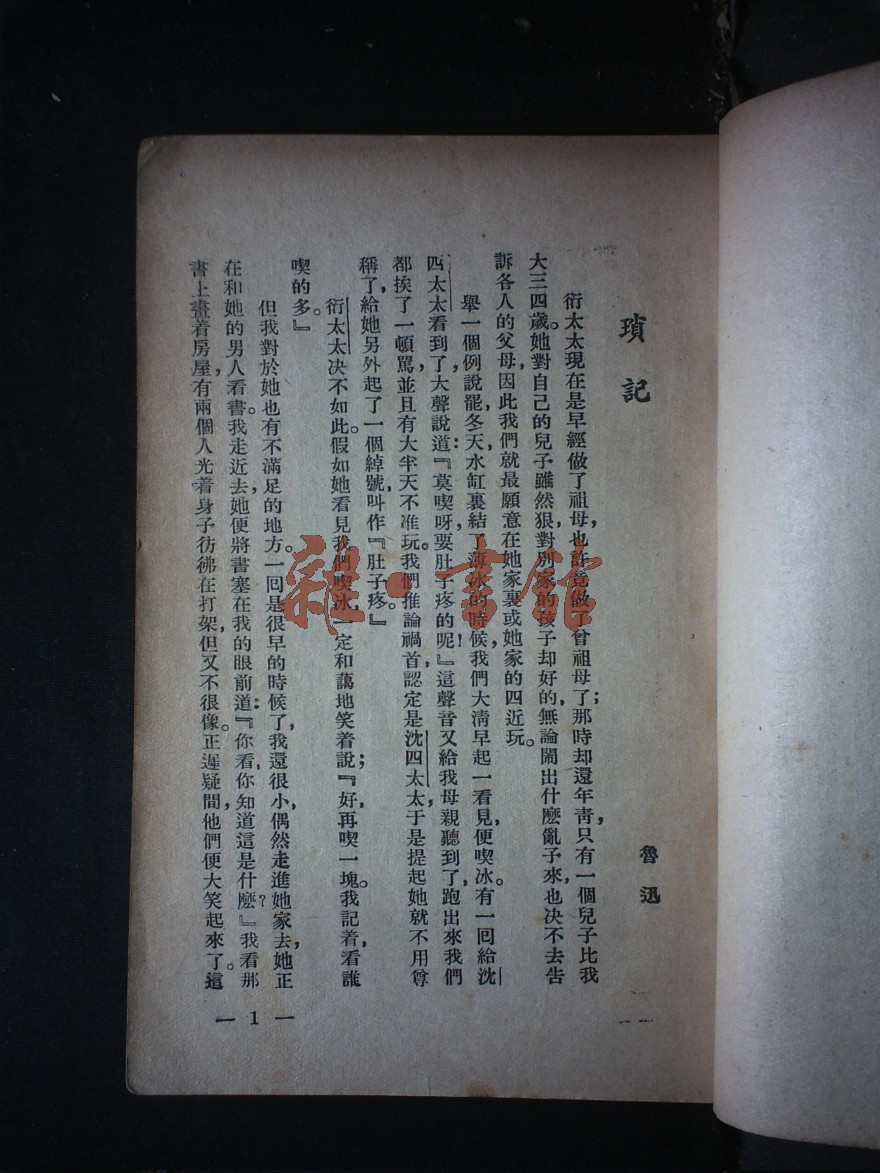 瑣記
魯迅
衍太太現在是早經做了祖母,也許竟做了曾祖母了;那時却還年靑,只有一個兒子比我
大三四歲。她對自己的兒子雖然狠,對別家的孩子却好的,無論鬧出什麽亂子來,也決不去告
訴各人的父母,因此我們就最願意在她家裏或她家的四近玩。
舉一個例說罷,冬天,水缸裏結了薄冰的時候,我們大淸早起一看見,便喫冰。有一囘給沈
四太太看到了,大聲說道:『莫喫呀,要肚子疼的呢!』這聲音又給我母親聽到了,跑出來我們
都挨了一頓罵,並且有大半天不准玩。我們推論禍首,認定是沈四太太,于是提起她就不用尊
稱了,給她另外起了一個綽號,叫作『肚子疼。』
衍太太決不如此。假如她看見我們喫冰,一定和藹地笑着說;『好,再喫一塊。我記着,看誰
喫的多。』
但我對於她也有不滿足的地方。一囘是很早的時候了,我還很小,偶然走進她家去,她正
在和她的男人看書。我走近去,她便將書塞在我的眼前道:『你看,你知道這是什麽?』我看那
書上畫着房屋,有兩個人光着身子彷彿在打架,但又不很像。正遲疑間,他們便大笑起來了。這
— 1 —
雜·書館